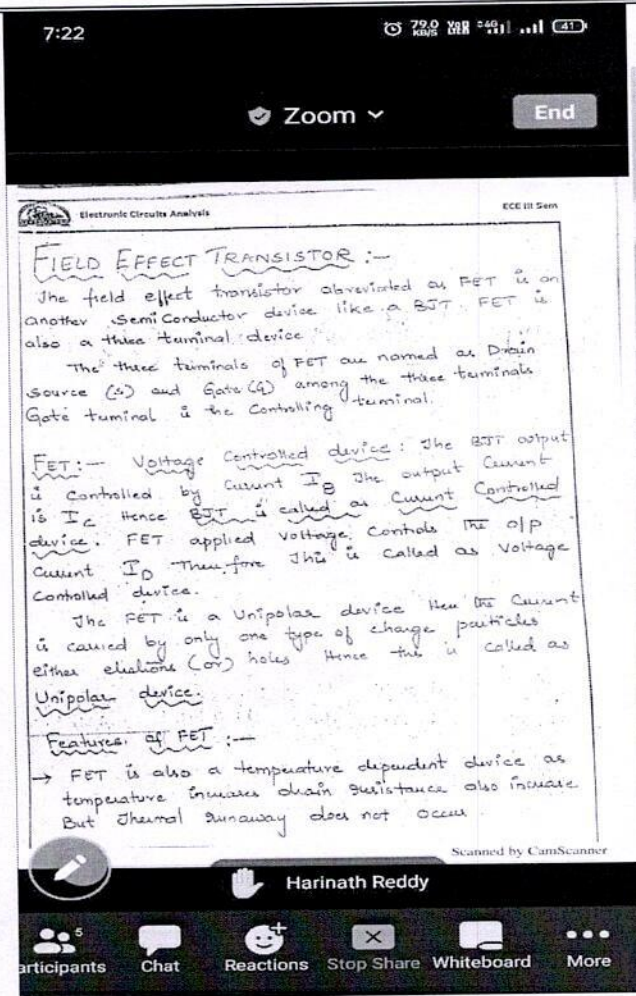 7:22
79.0 KB/S
4G
41
Zoom
End
Electronic Circuits Analysis
ECE III Sem
FIELD EFFECT TRANSISTOR :-
The field effect transistor abreviated as FET is an
another SemiConductor device like a BJT. FET is
also a three terminal device
The three terminals of FET are named as Drain
Source (S) and Gate (G) among the three terminals
Gate terminal is the Controlling terminal.
FET :- Voltage Controlled device : The BJT output
is controlled by Current IB The output Current
is IC Hence BJT is called as Current Controlled
device. FET applied voltage Controls the o/p
Current ID Therefore This is called as Voltage
Controlled device.
The FET is a Unipolar device Here the Current
is carried by only one type of charge particles
either (or) holes Hence this is called as
Unipolar device.
Features of FET :-
→ FET is also a temperature dependent device as
temperature increases drain resistance also increase
But Thermal runaway does not occur
Scanned by CamScanner
Harinath Reddy
5
articipants
Chat
Reactions
Stop Share
Whiteboard
More